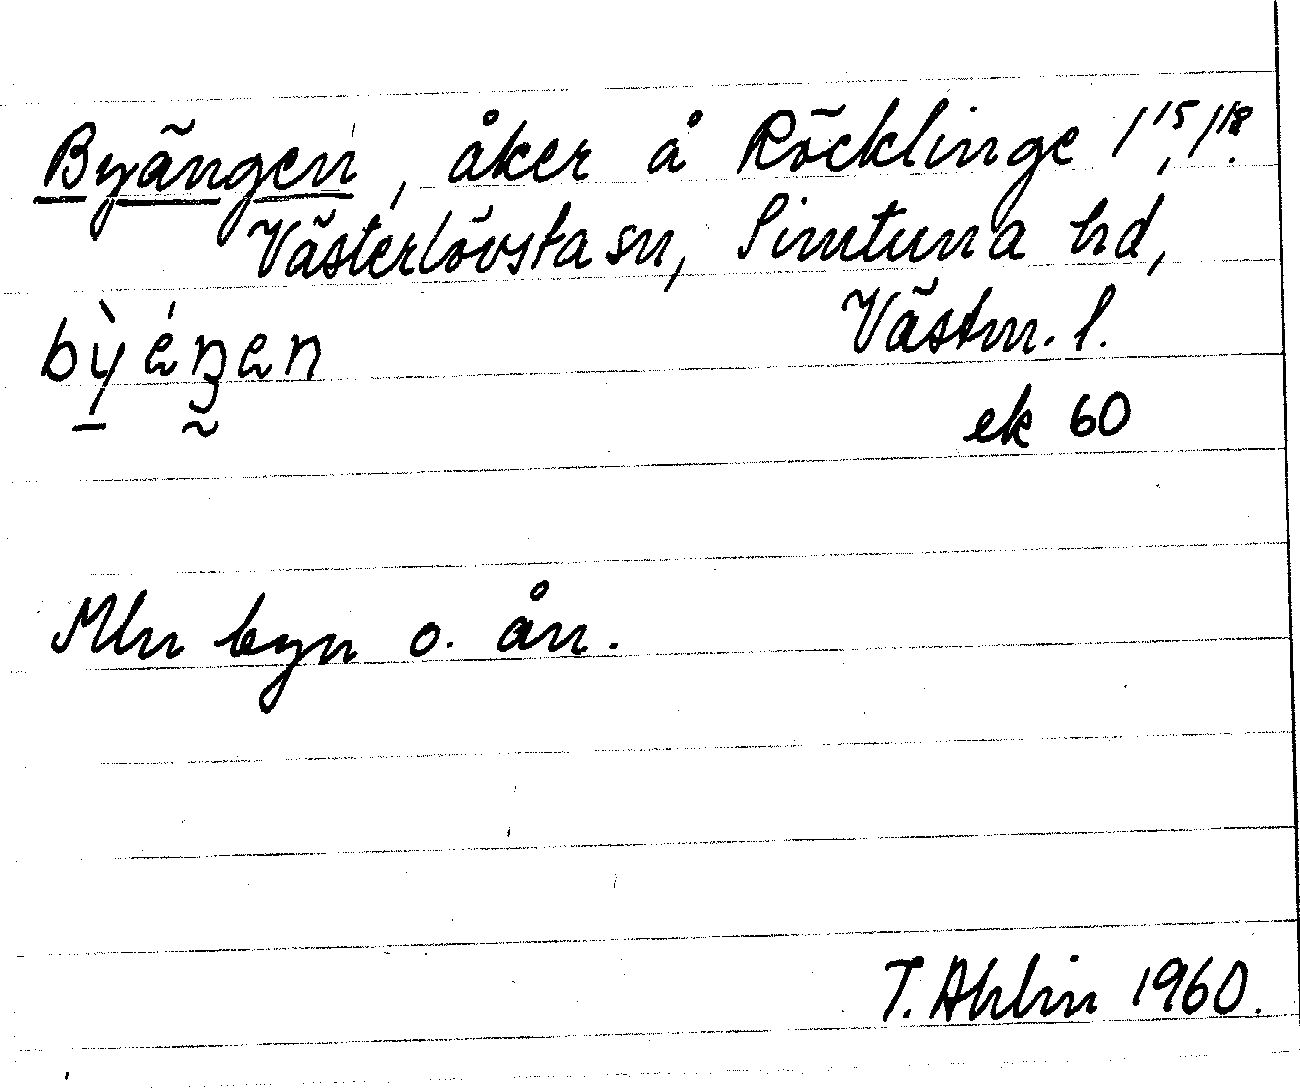 Byängen, åker å Röcklinge 1¹⁵, 1¹⁸.
Västerlövsta sn, Simtuna hd,
Västm. l.
bỳéŋen
ek 60
Mln byn o. ån.
T. Ahlin 1960.